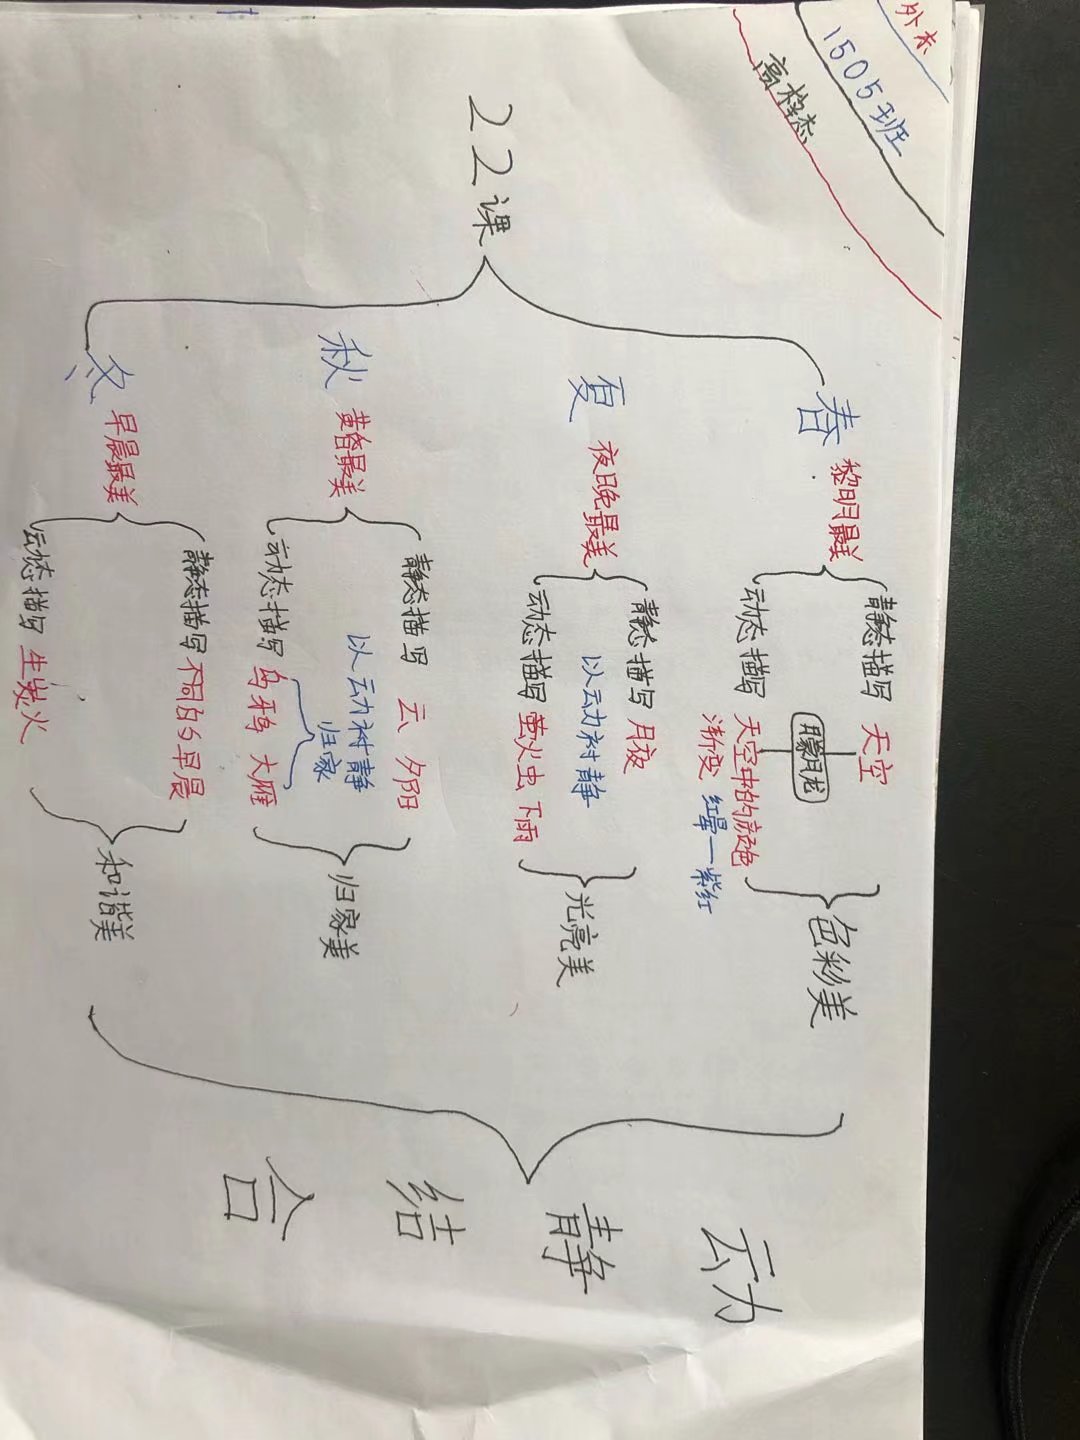 外东
1505班
高梓杰
22课
春 黎明最美
静态描写 天空
朦胧
动态描写 天空中的颜色
渐变 红晕一紫红
色彩美
夏 夜晚最美
静态描写 月夜
以动衬静
动态描写 萤火虫 下雨
光亮美
秋 黄昏最美
静态描写 云 夕阳
以动衬静
归家
动态描写 乌鸦 大雁
归家美
冬 早晨最美
静态描写 不同的早晨
动态描写 生炭火
和谐美
动静结合